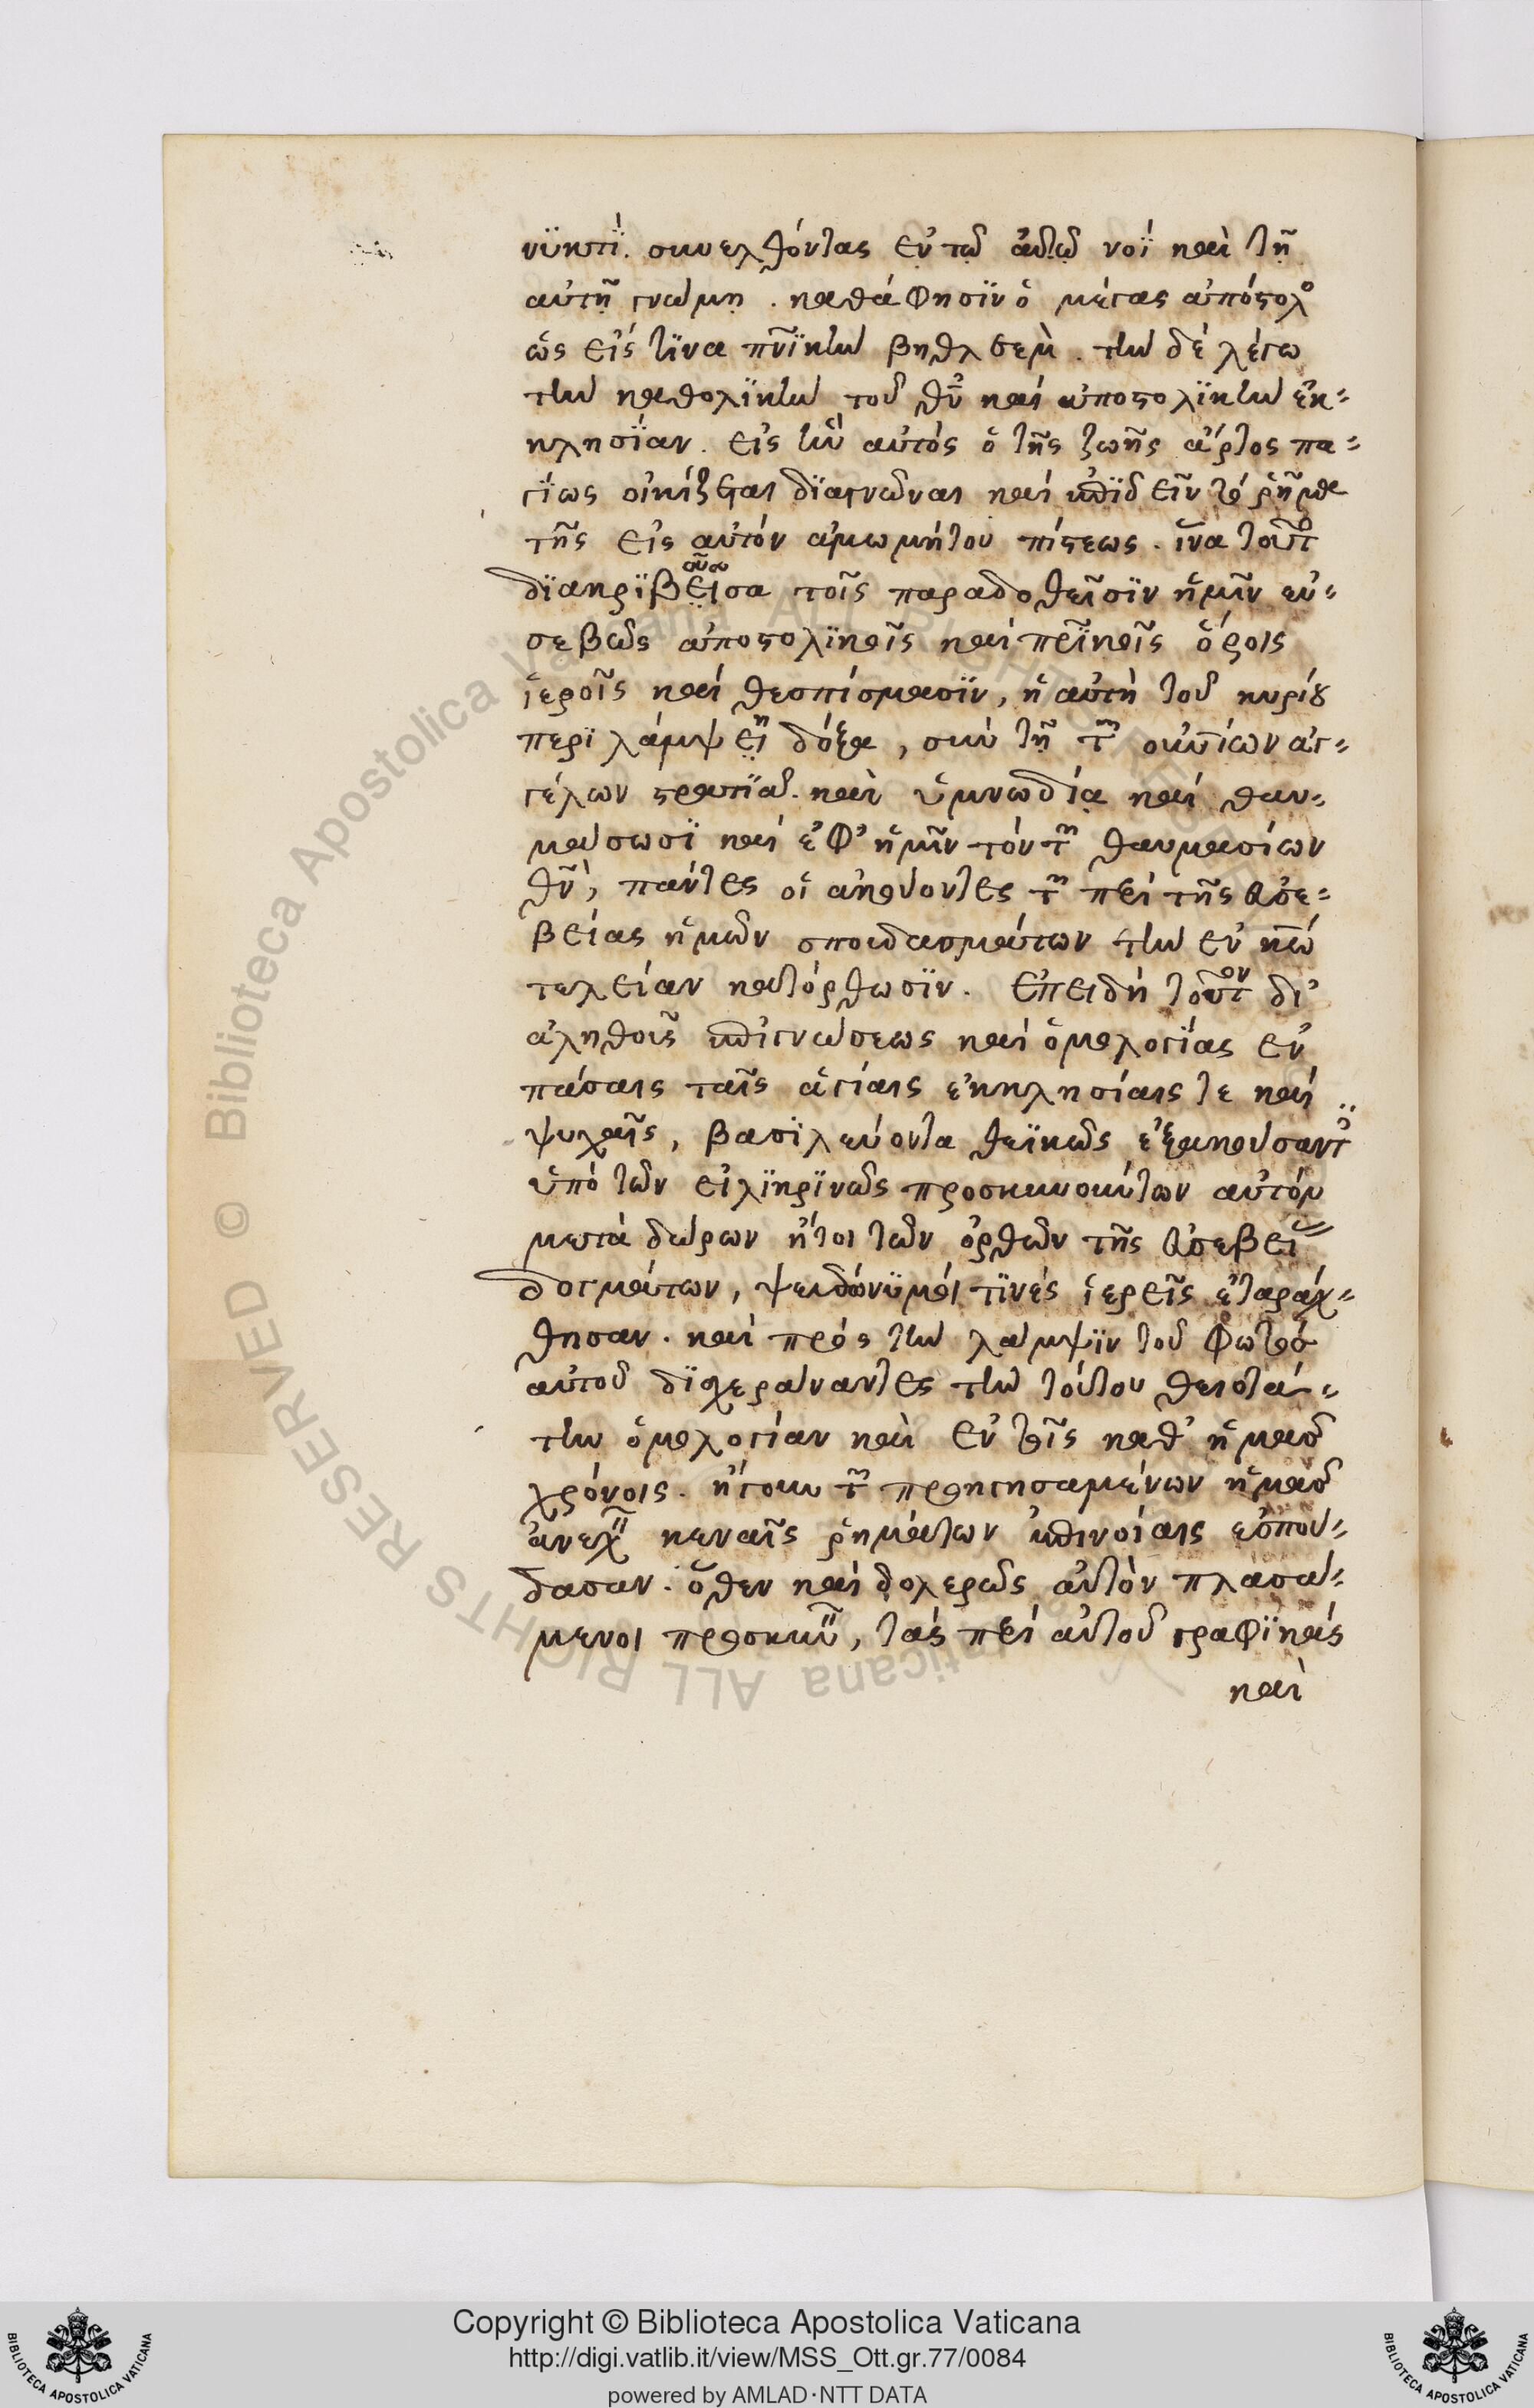 νϋκτϊ. συνελθόντας ἐν τῶ αὐτῶ νοῒ καὶ τῆ
αὐτῆ γνώμη. καθά φησϊν ὁ μέγας ἀπόστολο
ὡς εἰς τϊνα πνϊκὴν βηθλεὲμ. τὴν δὲ λέγω
τὴν καθολϊκὴν τοῦ θυ καὶ ἀποστολϊκὴν ἐκ-
κλησίαν. εἰς ἣν αὐτὸς ὁ τῆς ζωῆς ἄρτος πα-
γΐως οἰκίζεται δϊαγνῶναι καὶ ἐπϊδεῖν τὸ ῥῆμα
τῆς εἰς αὐτὸν ἀμωμήτου πίστεως. ἵνα τοῦτο
δϊακρϊβεῖσα τοῖς παραδοθεῖσϊν ἡμῖν εὐ-
σεβῶς ἀποστολϊκοῖς καὶ πρϊκοῖς ὅροις
ἱεροῖς καὶ θεσπίσμασϊν, ἡ αὐτὴ τοῦ κυρίου
περϊλάμψει δόξα, σὺν τῆ τῶν οὐνίων ἀγ-
γέλων στρατϊᾶ. καὶ ὑμνωδία καὶ θαυ-
μάσωσϊ καὶ ἐφ' ἡμῖν τὸν τῶν θαυμασίων
θν, πάντες οἱ ἀκούοντες τῶν περὶ τῆς εὐσε-
βείας ἡμῶν σπουδασμάτων τὴν ἐν κω
τελείαν κατόρθωσϊν. Ἐπειδὴ τοῦτον δι'
ἀληθοῦς ἐπιγνώσεως καὶ ὁμολογΐας ἐν
πάσαις ταῖς ἁγίαις ἐκκλησίαις τε καὶ
ψυχαῖς, βασϊλεύοντα θεϊκῶς ἐξακούσαντ
ὑπὸ τῶν εἰλϊκρϊνῶς προσκυνούντων αὐτὸν
μετὰ δώρων ἤτοι τῶν ὀρθῶν τῆς εὐσεβεί
δογμάτων, ψευδώνϋμοί τϊνὲς ἱερεῖς ἐταράχ-
θησαν. καὶ πρὸς τὴν λάμψϊν τοῦ φωτὸς
αὐτοῦ δϊσχεράναντες τὴν τούτου θειοτά-
την ὁμολογίαν καὶ ἐν τοῖς καθ' ἡμᾶς
χρόνοις. ἤγουν τῶν προηγησαμένων ἡμᾶς
ἀνεχ κεναῖς ῥημάτων ἐπινοίαις ἐσπού-
δασαν. ὅθεν καὶ δολερῶς αὐτὸν πλασά-
μενοι προσκυν, τὰς περὶ αὐτοῦ γραφϊκὰς
καὶ
Copyright © Biblioteca Apostolica Vaticana
http://digi.vatlib.it/view/MSS_Ott.gr.77/0084
powered by AMLAD·NTT DATA